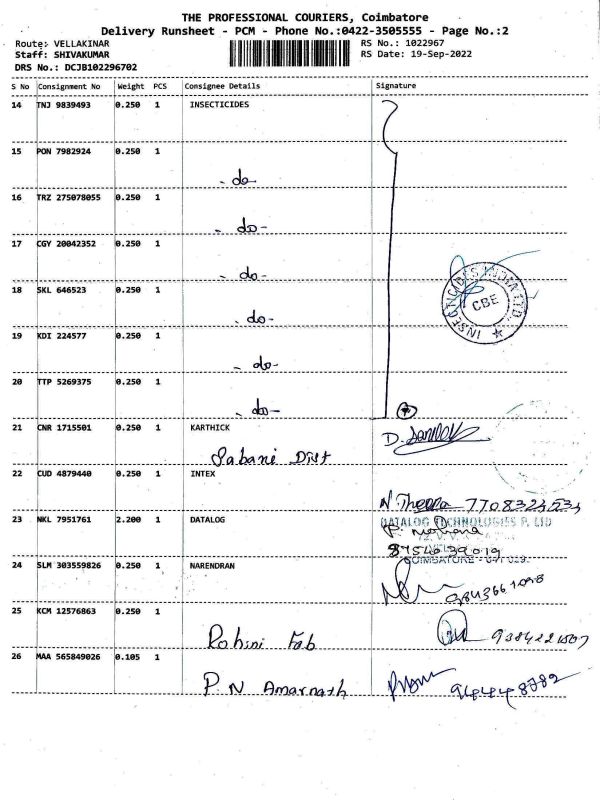 THE PROFESSIONAL COURIERS, Coimbatore
Delivery Runsheet - PCM - Phone No.:0422-3505555 - Page No.:2
Route: VELLAKINAR
RS No.: 1022967
Staff: SHIVAKUMAR
RS Date: 19-Sep-2022
DRS No.: DCJB102296702
S No Consignment No Weight PCS Consignee Details Signature
14 TNJ 9839493 0.250 1 INSECTICIDES
15 PON 7982924 0.250 1
- do
16 TRZ 275078055 0.250 1
- do-
17 CGY 20042352 0.250 1
- do-
18 SKL 646523 0.250 1
- do-
19 KDI 224577 0.250 1
- do-
20 TTP 5269375 0.250 1
- do-
INSECTICIDES INDIA LTD.
CBE
7
21 CNR 1715501 0.250 1 KARTHICK
Sabani Dist
22 CUD 4879440 0.250 1 INTEX
23 NKL 7951761 2.200 1 DATALOG
DATALOG TECHNOLOGIES P. LTD
8754639019
24 SLM 303559826 0.250 1 NARENDRAN
25 KCM 12576863 0.250 1
Rohini Fab
26 MAA 565849026 0.105 1
P N Amarnath